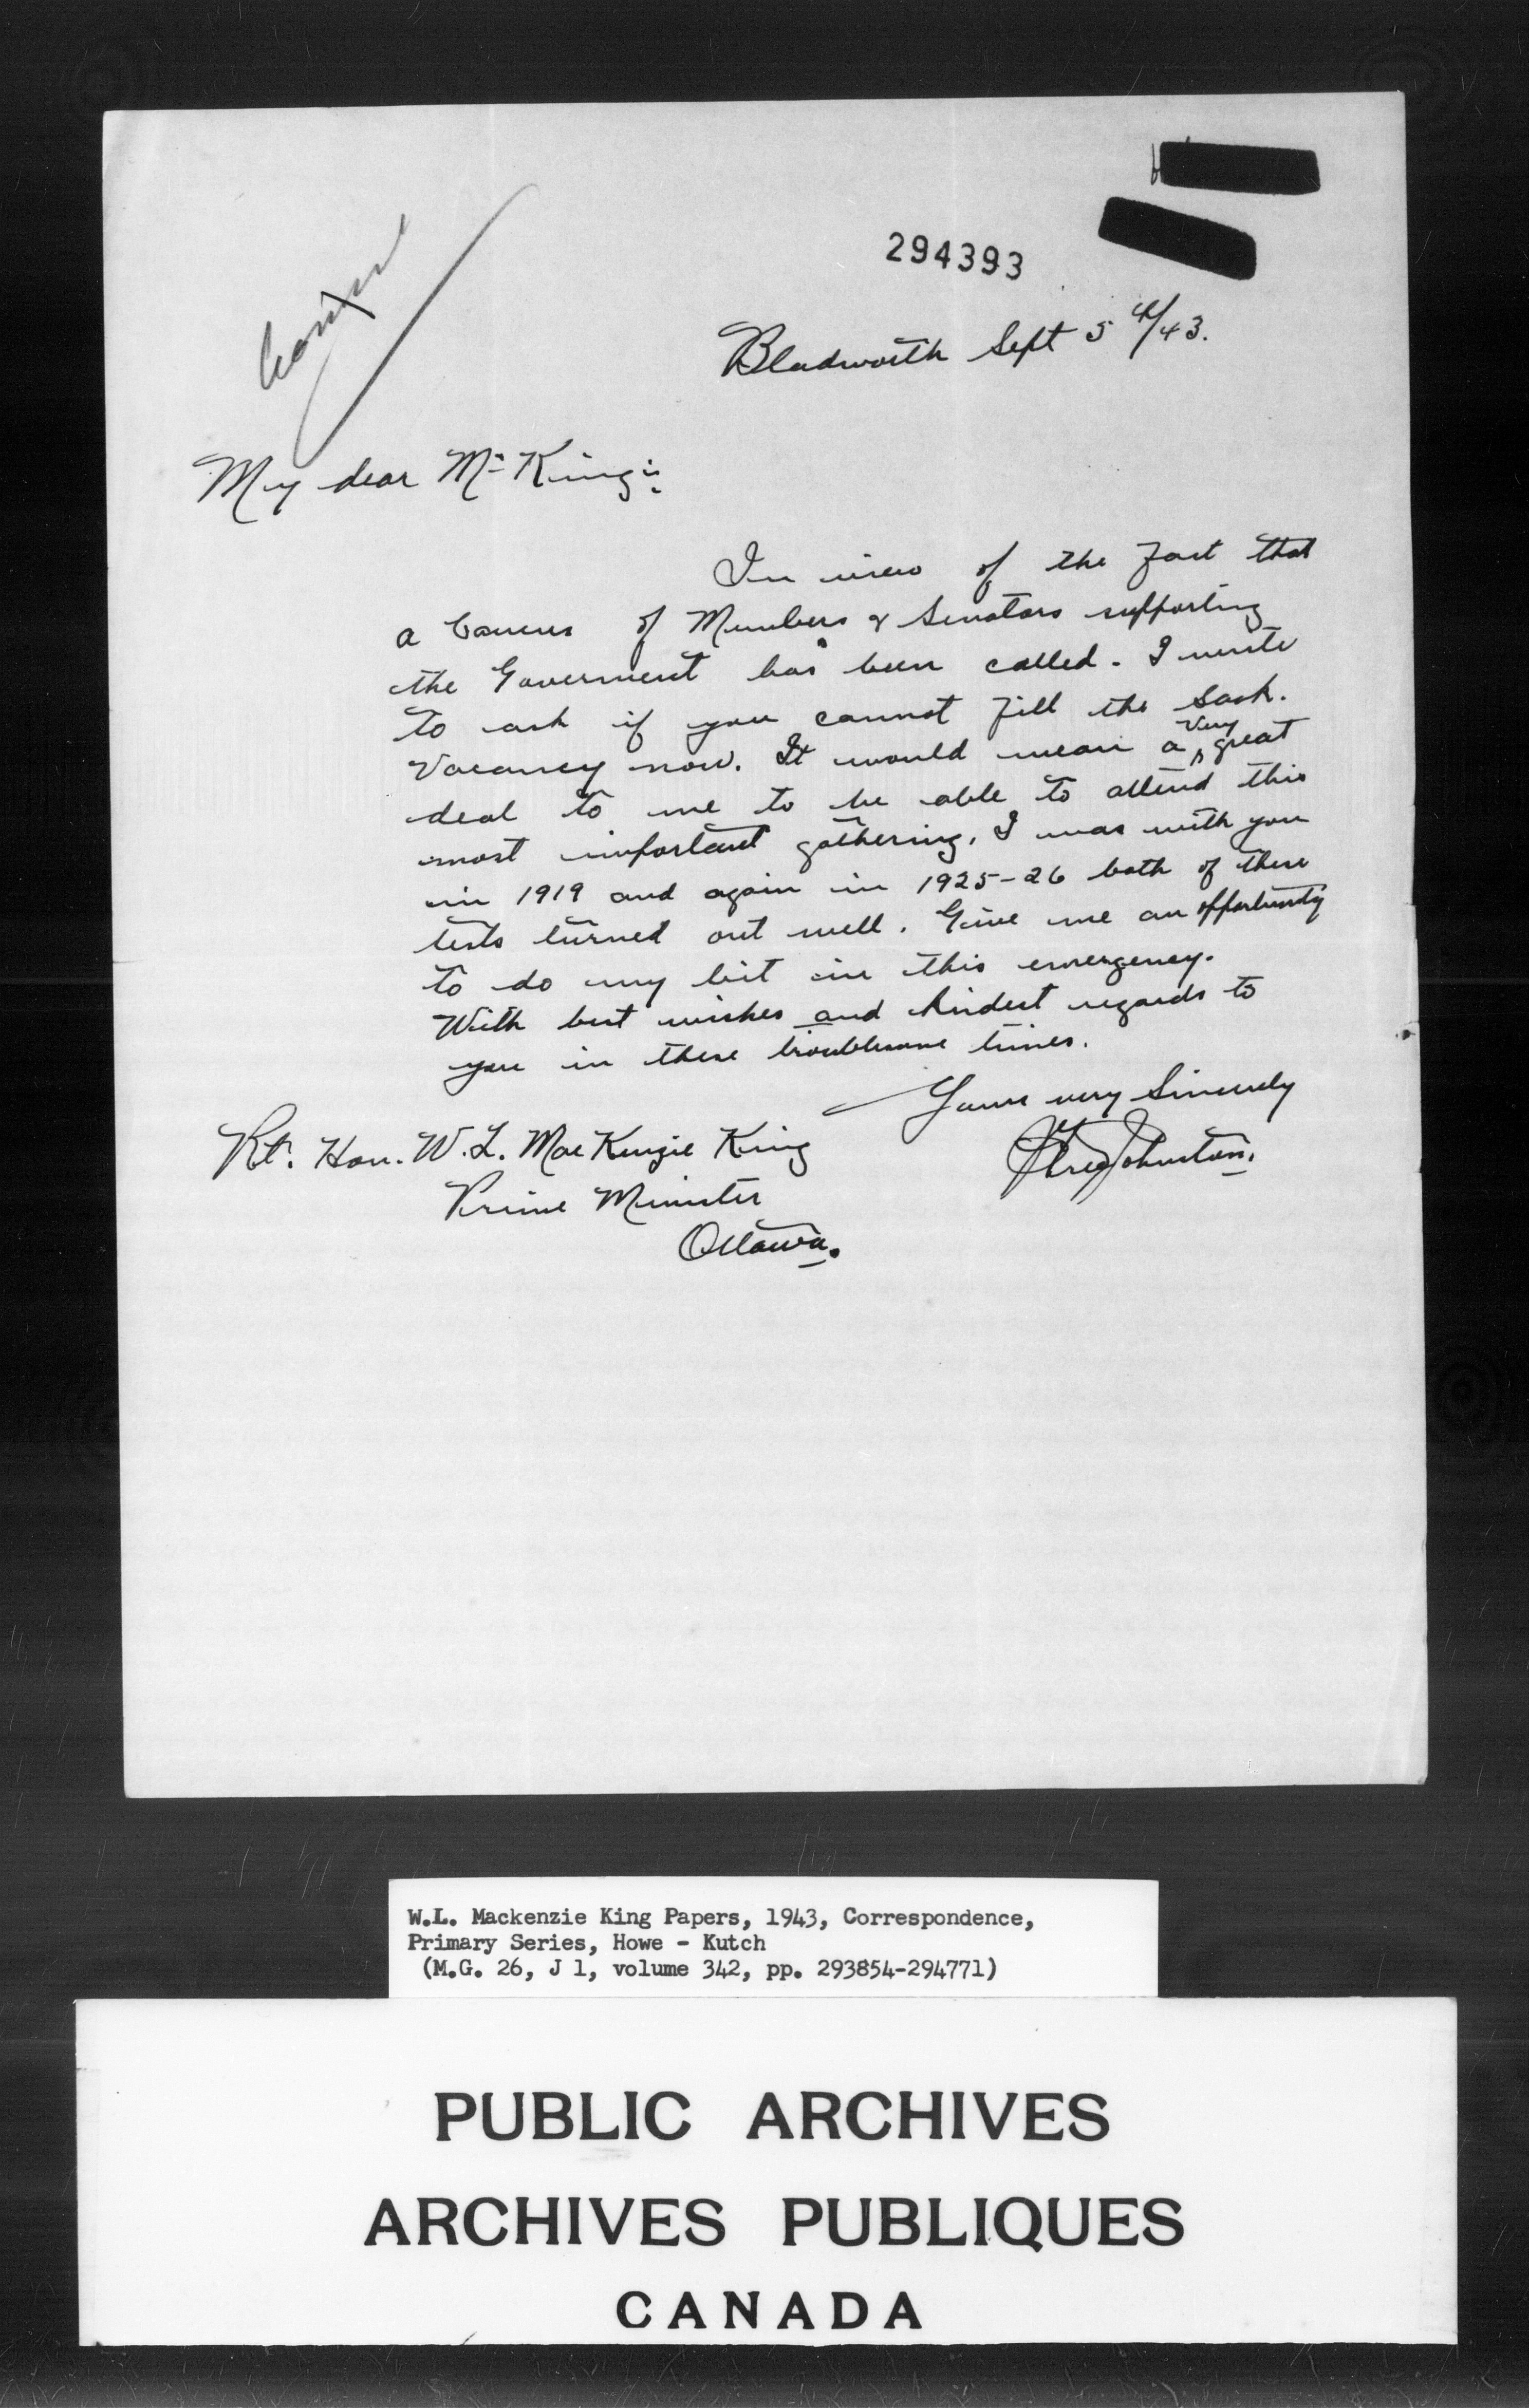 294393
Bladworth Sept 5th/43.
My dear Mr King:
In view of the fact that
a Caucus of Members & Senators supporting
the Goverment has been called. I write
to ask if you cannot fill the Sask.
Vacancy now. It would mean a very great
deal to me to be able to attend this
most important gathering. I was with you
in 1919 and again in 1925-26 both of these
tests turned out well. Give me an opportunity
to do my bit in this emergency.
With best wishes and kindest regards to
you in these troublesome times.
Yours very Sincerely
Fred Johnston.
Rt. Hon. W. L. MacKenzie King
Prime Minister
Ottawa.
W.L. Mackenzie King Papers, 1943, Correspondence,
Primary Series, Howe - Kutch
(M.G. 26, J 1, volume 342, pp. 293854-294771)
PUBLIC ARCHIVES
ARCHIVES PUBLIQUES
CANADA